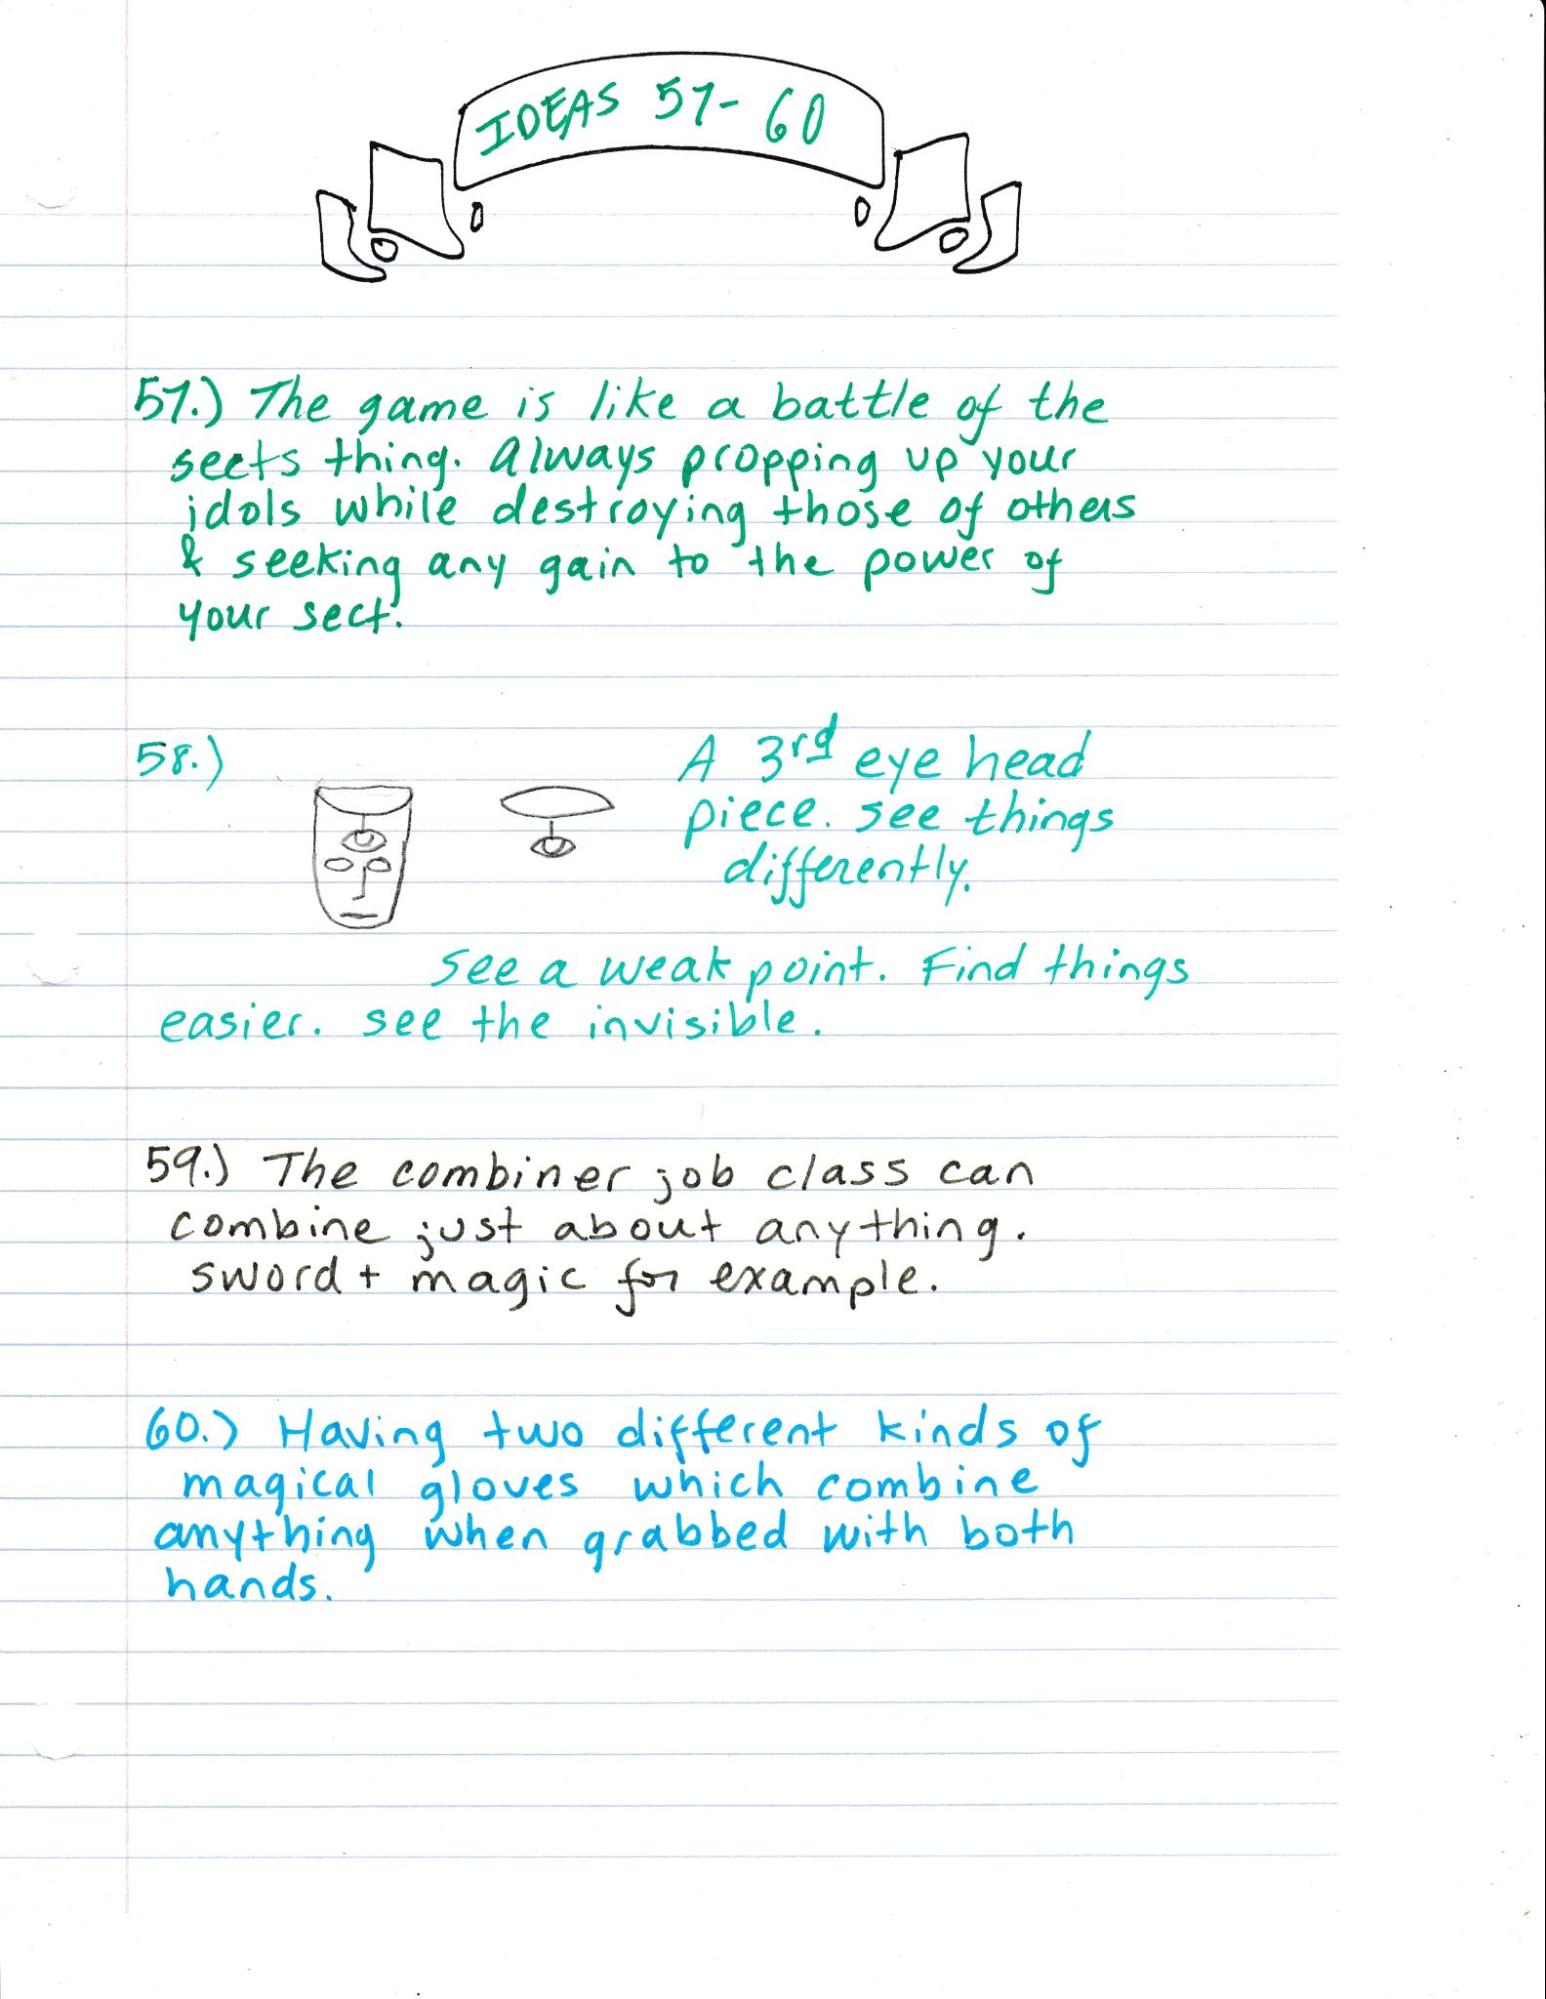 IDEAS 57-60
57.) The game is like a battle of the
sects thing. Always propping up your
idols while destroying those of others
& seeking any gain to the power of
your sect.
58.)
A 3rd eye head
piece. see things
differently.
See a weak point. Find things
easier. see the invisible.
59.) The combiner job class can
combine just about anything.
sword + magic for example.
60.) Having two different kinds of
magical gloves which combine
anything when grabbed with both
hands.